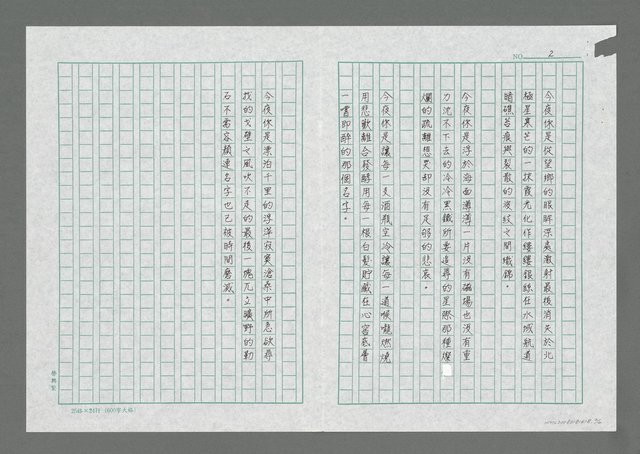 NO. 2
今夜你是從望鄉的眼眸深處激射最後消失於北
極星暴芒的一抹霞光化作縷縷銀絲在水域軌道
暗礁苔痕與裂散的波紋之間織錦。
今夜你是浮於海面薄薄一片沒有磁場也沒有重
力沈不下去的冷冷黑鐵所要追尋的星際那種燦
爛的疏離想哭卻沒有足够的悲哀。
今夜你是讓每一支酒瓶空冷讓每一道喉嚨燃燒
用悲歡離合發酵用每一根白髮貯藏在心窖輕嘗
一嘗即醉的那個名字。
今夜你是漂泊千里的浮萍寂寞滄桑中所急欲尋
找的戈壁之風吹不走的最後一塊兀立曠野的勒
石不需容顏連名字也已被時間磨滅。
25行×24行 (600字大稿)